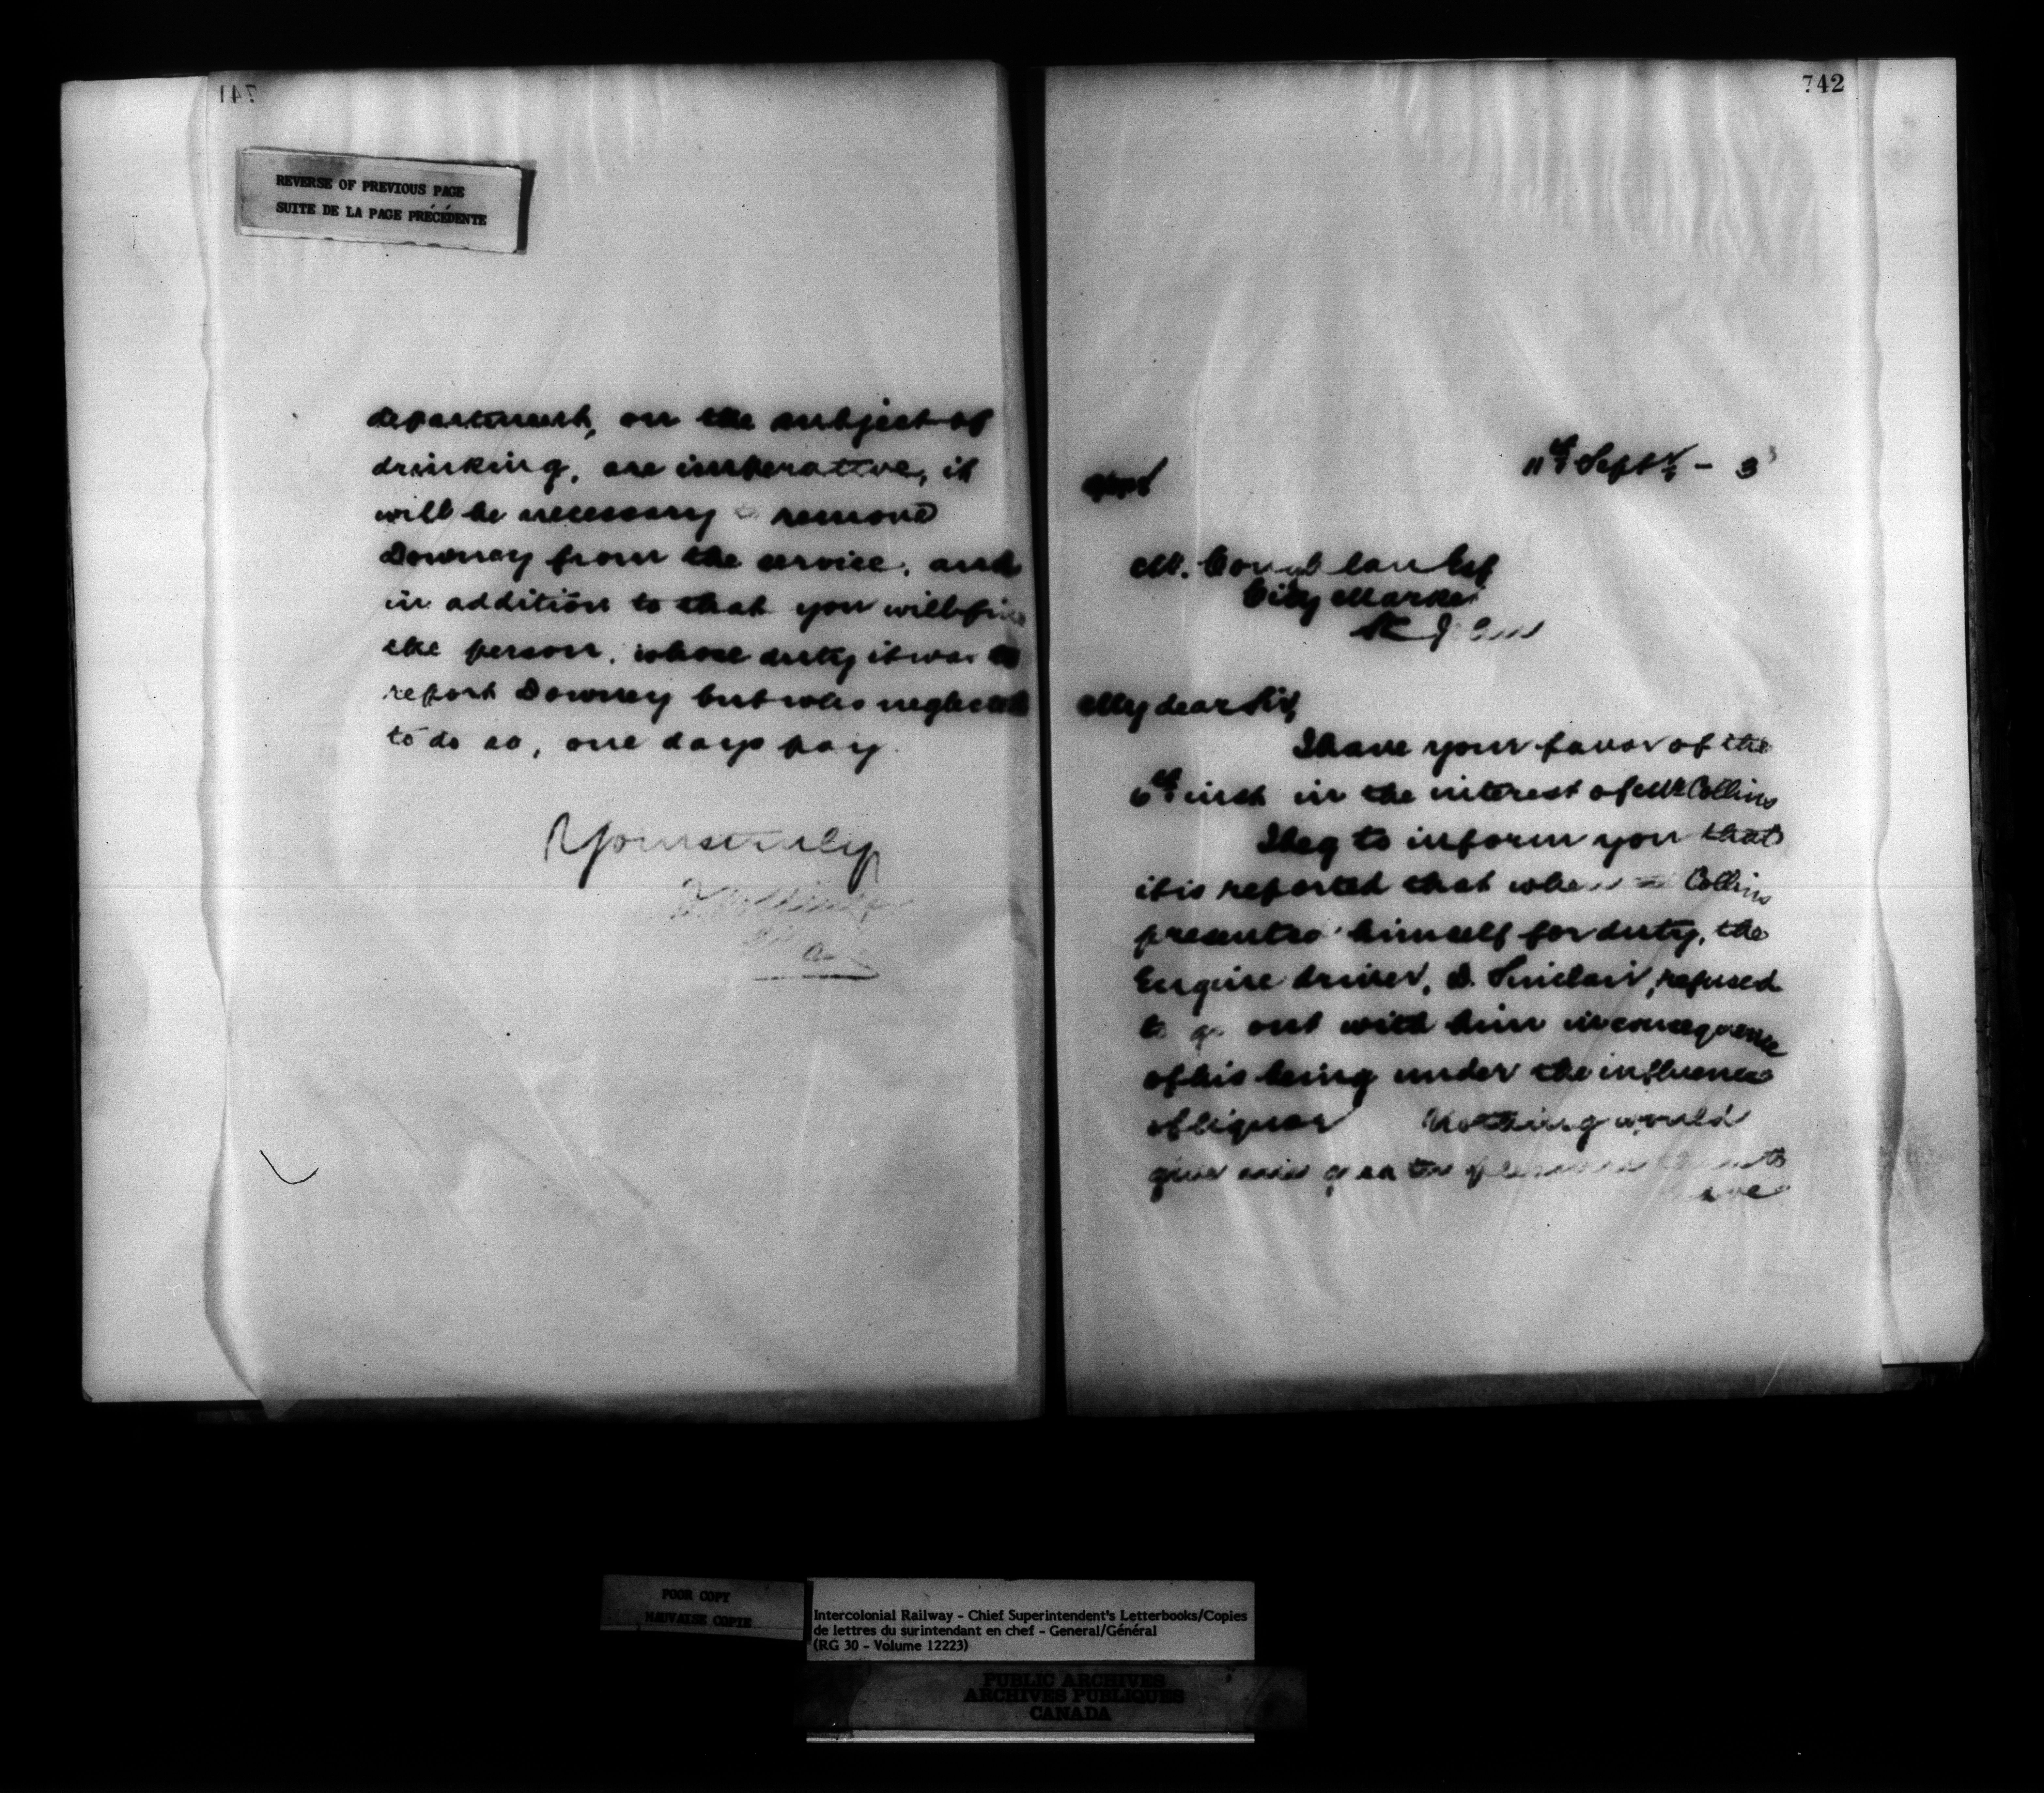 741
REVERSE OF PREVIOUS PAGE
SUITE DE LA PAGE PRÉCÉDENTE
department, on the subject of
drinking, are imperative, it
will be necessary to remove
Downey from the service, and
in addition to that you will fine
the person, whose duty it was to
report Downey but who neglected
to do so, one days pay
Yours truly
742
11th Septr - 3
M. Coughlan Esq
City Market
St John
My dear Sir,
I have your favor of the
6th inst in the interest of Mr Collins
I beg to inform you that
it is reported that when Collins
presented himself for duty, the
Engine driver, D. Sinclair, refused
to go out with him in consequence
of his being under the influence
of liquor Nothing would
give me greater pleasure than to
have
POOR COPY
MAUVAISE COPIE
Intercolonial Railway - Chief Superintendent's Letterbooks/Copies
de lettres du surintendant en chef - General/Général
(RG 30 - Volume 12223)
PUBLIC ARCHIVES
ARCHIVES PUBLIQUES
CANADA